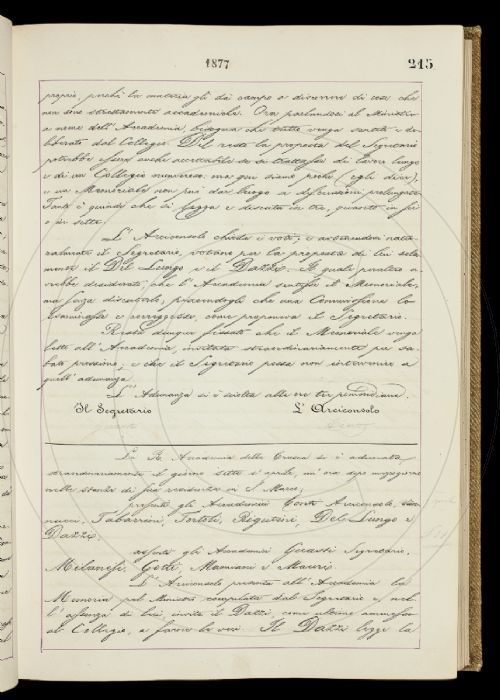 1877 215
proprie, perchè la materia gli dà campo a discorrere di cose che
non sono strettamente accademiche. Ora parlandosi al Ministro
a nome dell'Accademia, bisogna che tutto venga sentito e de-
liberato dal Collegio. Del resto la proposta del Segretario
potrebbe essere anche accettabile se si trattasse di lavoro lungo
e di un Collegio numeroso: ma qui siamo pochi (egli dice),
e un Memoriale non può dar luogo a discussioni prolungate.
Tanto è quindi che si legga e discuta in tre, quanto in sei
o in sette.
L'Arciconsolo chiede i voti; e astenendosi natu-
ralmente il Segretario, votano per la proposta di lui sola-
mente il Del Lungo e il Dazzi. Il quale peraltro a-
vrebbe desiderato, che l'Accademia sentisse il Memoriale,
ma senza discuterlo, piacendogli che una Commissione lo
esaminasse e correggesse, come proponeva il Segretario.
Resta dunque fissato che il Memoriale venga
letto all'Accademia, invitata straordinariamente per sa-
bato prossimo, e che il Segretario possa non intervenire a
quell'adunanza.
L'Adunanza si è sciolta alle ore tre pomeridiane.
Il Segretario L'Arciconsolo
La R. Accademia della Crusca si è adunata
straordinariamente il giorno sette di aprile, un'ora dopo mezzogiorno
nelle stanze di sua residenza in S. Marco;
presenti gli Accademici Conti Arciconsolo,
Tabarrini, Tortoli, Rigutini, Del Lungo e
Dazzi.
assenti gli Accademici Guasti Segretario,
Milanesi, Gotti, Mamiani e Mauri.
L'Arciconsolo presenta all'Accademia la
Memoria pel Ministro compilata dal Segretario e nel-
l'assenza di lui, invita il Dazzi, come ultimo ammesso
al Collegio, a farne le veci. Il Dazzi legge la